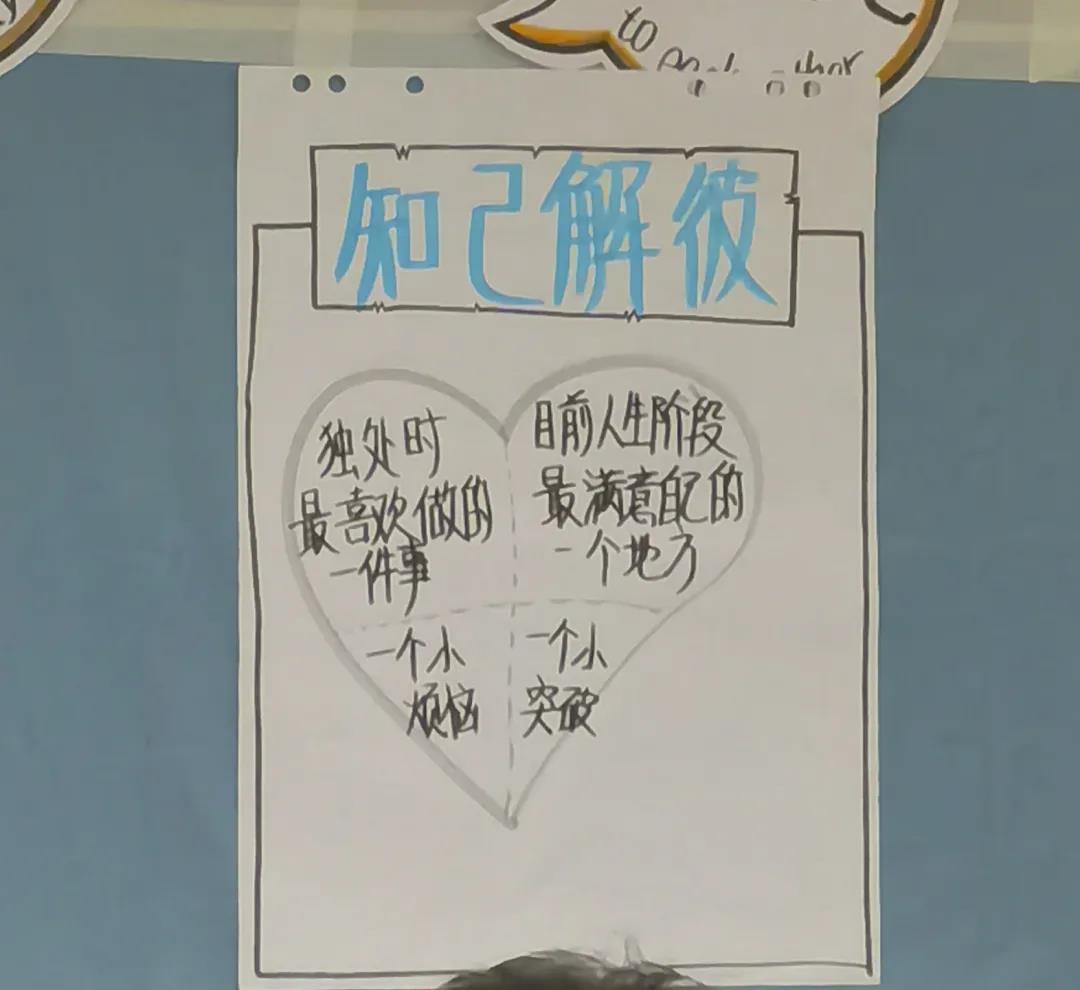 to
知己解彼
独处时
最喜欢做的
一件事
目前人生阶段
最满意自己的
一个地方
一个小
烦恼
一个小
突破